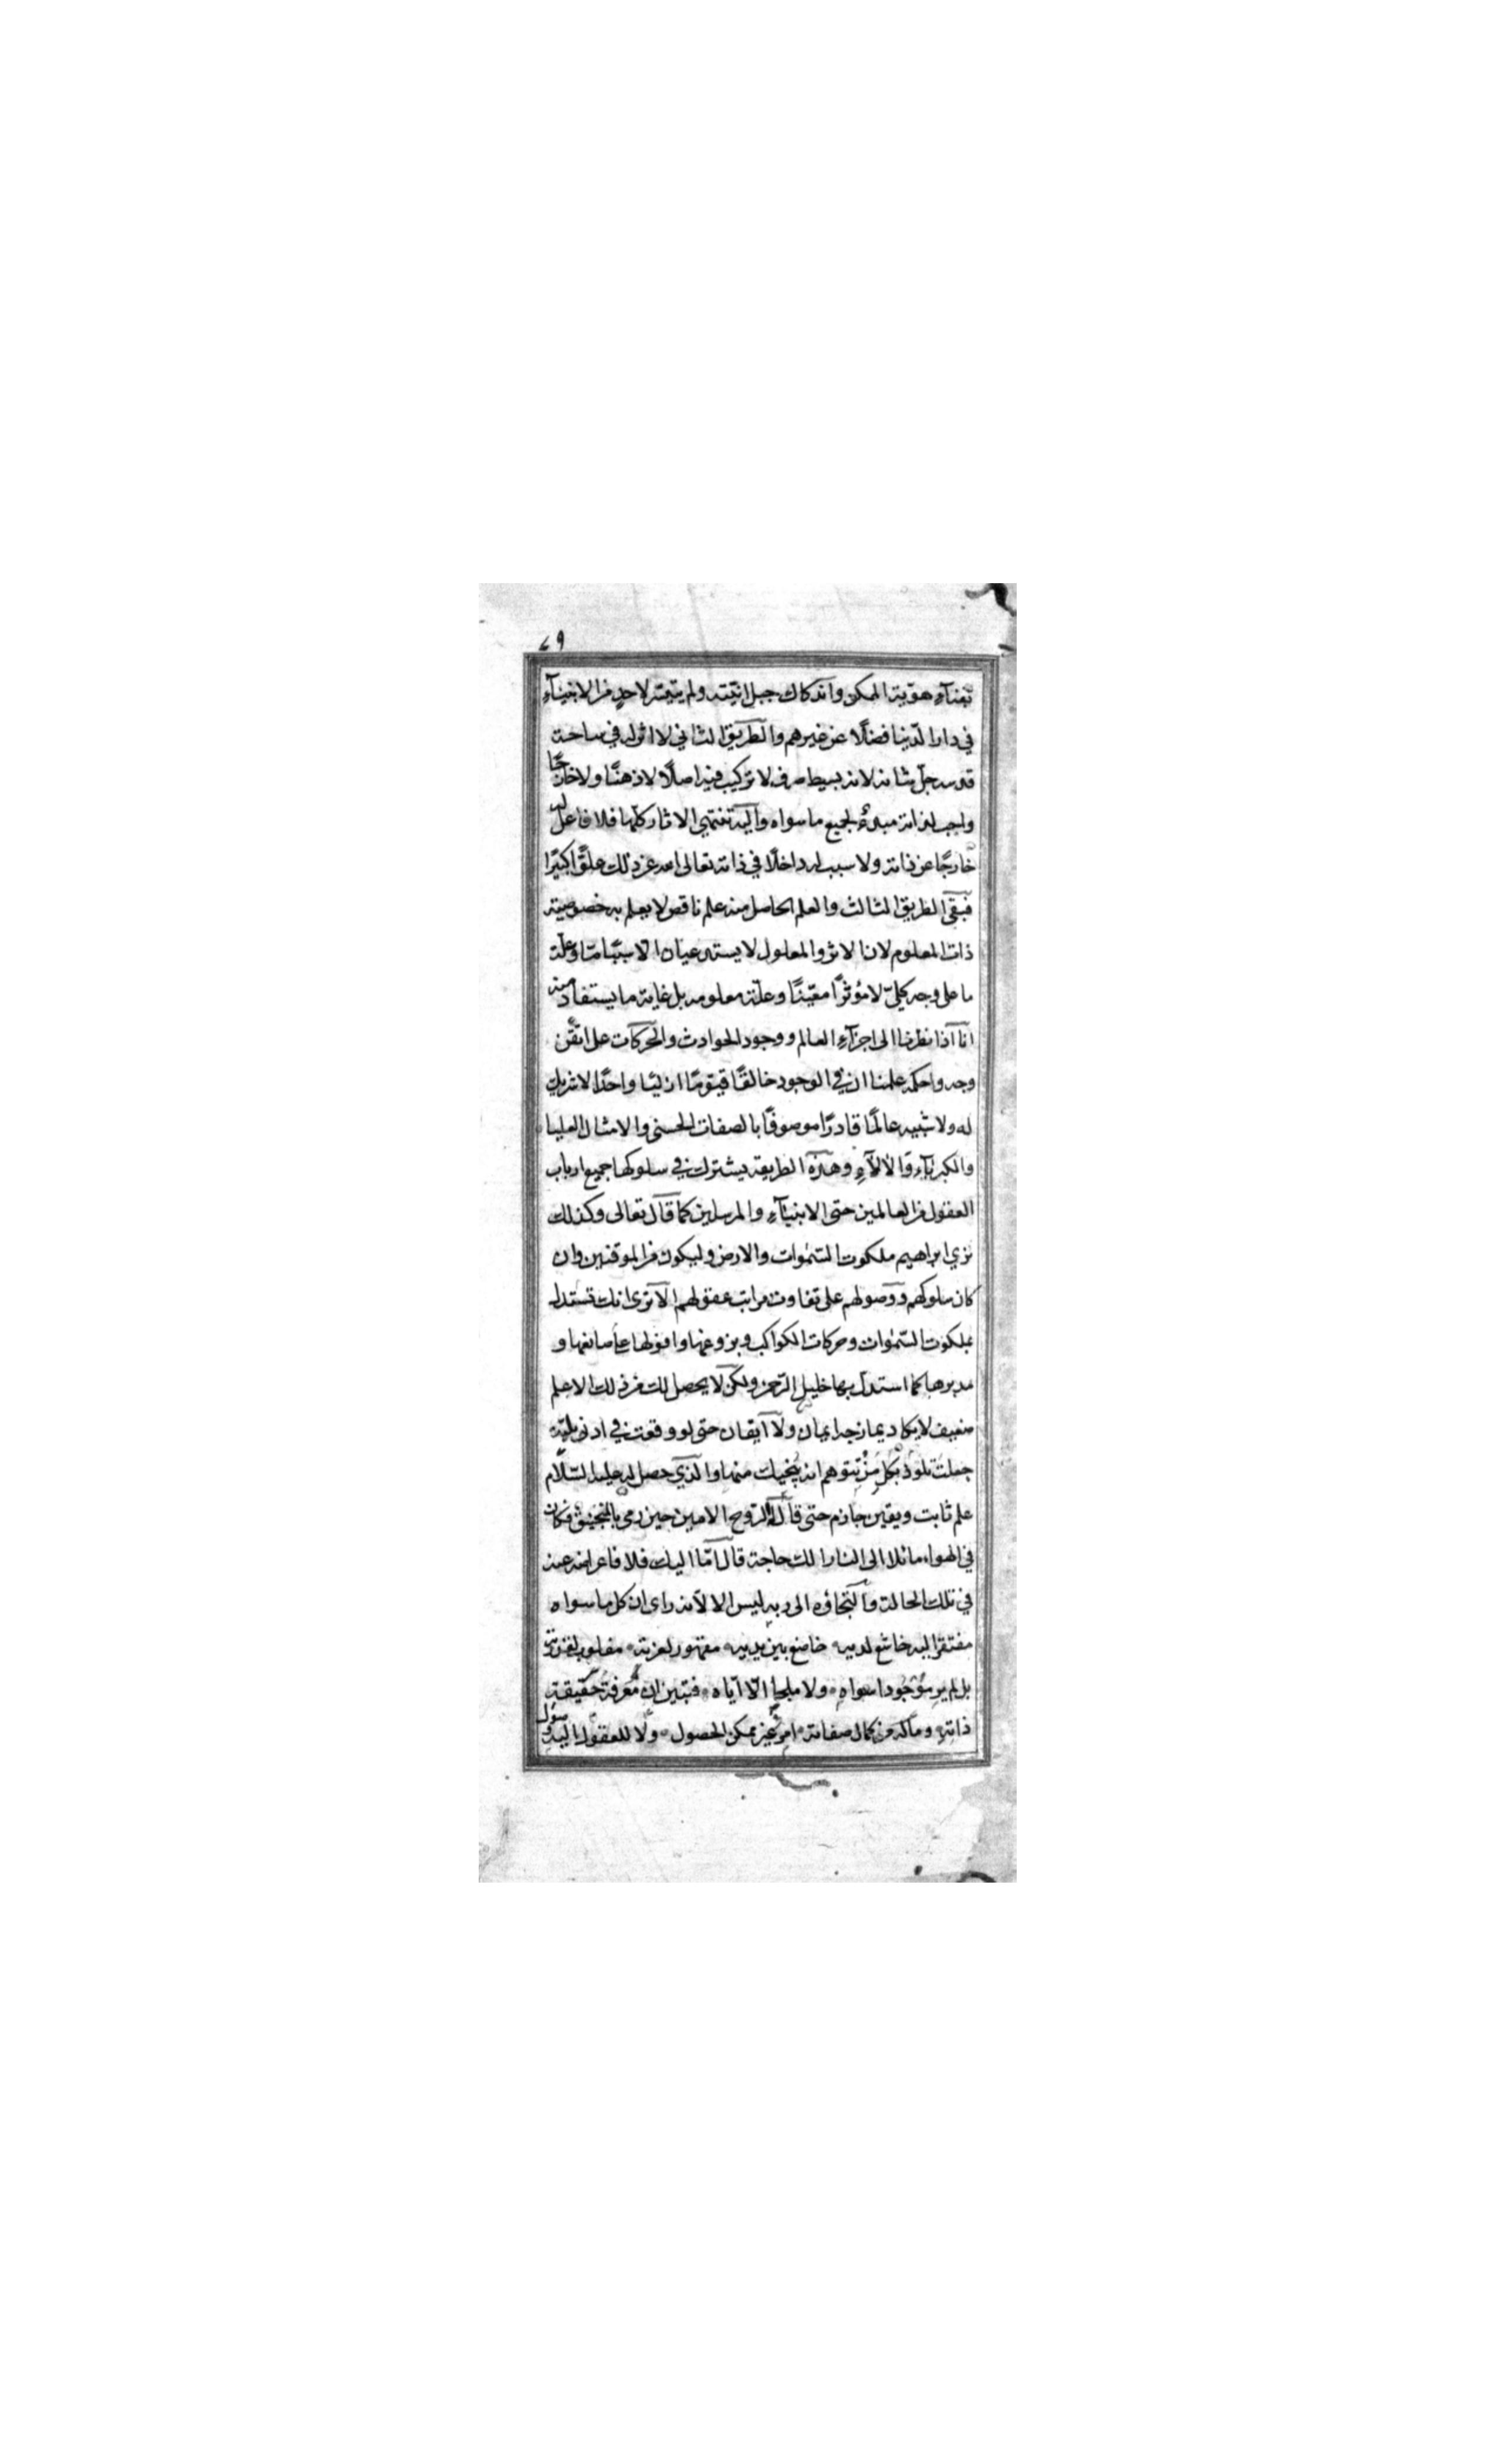 ٤٩
بفنآء هويّة الممكن واندكاك جبل انيّته ولم يتيسّر لاحدٍ من الانبيآءِ
في دار الدّنيا فضلًا عن غيرهم والطريق الثاني لا اثر له في ساحة
قدسه جلّ شانه لانه بسيط صرف لا تركيب فيه اصلًا لا ذهنًا ولا خارجًا
واجب لذاته مبدءٌ لجميع ما سواه واليه تنتهي الاثار كلّها فلا فاعل له
خارجًا عن ذاته ولا سبب له داخلًا في ذاته تعالى الله عن ذلك علوًّا كبيرًا
فبقى الطريق الثالث والعلم الحاصل منه علم ناقص لا يعلم به خصوصية
ذات المعلوم لان الاثر والمعلول لا يستدعيان الّا سببًا ما وعلّة
ما على وجه كليّ لا مؤثرًا معيّنًا وعلّة معلومه بل غاية ما يستفاد منه
انّا اذا نظرنا الى اجزآء العالم ووجود الحوادث والحركات على اتقن
وجه واحكمه علمنا ان في الوجود خالقًا قيّومًا ازليًا واحدًا لا شريك
له ولا شبيه عالمًا قادرًا موصوفًا بالصفات الحسنى والامثال العليا
والكبريآء والالآءِ وهذه الطريقه يشترك في سلوكها جميع ارباب
العقول من العالمين حتى الانبيآء والمرسلين كما قال تعالى وكذلك
نري ابراهيم ملكوت السّموات والارض وليكون من الموقنين وان
كان سلوكهم ووصولهم على تفاوت مراتب عقولهم الا ترى انك تستدل
بملكوت السّموات وحركات الكواكب وبزوغها وافولها على صانعها و
مدبرها كما استدلّ بها خليل الرّحمن ولكن لا يحصل لك من ذلك الا علم
ضعيف لا يكاد يمازجه ايمان ولا ايقان حتى لو وقعت في ادنى بليّة
جعلت تلوذ بكل من تتوهم انه ينجيك منها والذي حصل له عليه السّلام
علم ثابت ويقين جازم حتى قال له الروح الامين حين رمى بالمنجنيق فكان
في الهواء مائلا الى النار الك حاجة قال امّا اليك فلا فاعراضه عنه
في تلك الحالة والتجاؤه الى ربه ليس الا لانه راى ان كل ما سواه
مفتقرا اليه خاشع لديه خاضع بين يديه مقهور لعزته مغلوب لقدرته
بل لم ير موجودا سواه ولا ملجا الّا ايّاه فتبين ان معرفة حقيقة
ذاته وماله من كمال صفاته امر غير ممكن الحصول ولا للعقول اليه وصول